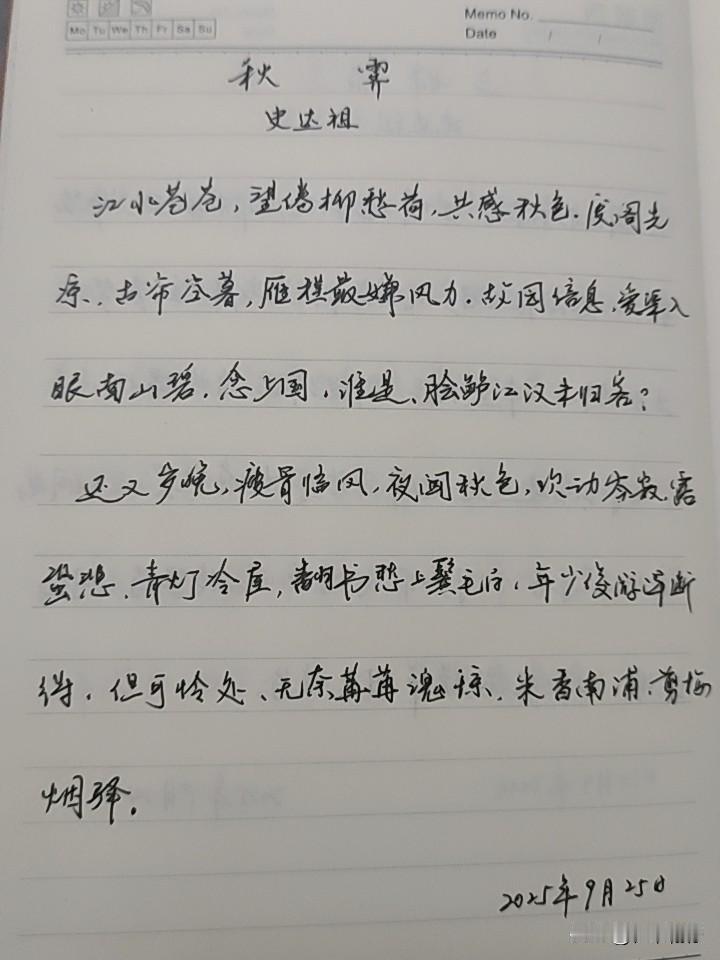 Mo Tu We Th Fr Sa Su
Memo No.
Date / /
秋 霁
史达祖
江水苍苍,望倦柳愁荷,共感秋色。废阁先
凉、古帘空暮,雁程最嫌风力。故园信息,爱渠入
眼南山碧。念上国,谁是、脍鲈江汉未归客?
还又岁晚、瘦骨临风,夜闻秋色,吹动岑寂。露
蛩悲、青灯冷屋,翻书愁上鬓毛白。年少俊游浑断
得,但可怜处、无奈苒苒魂惊、采香南浦、剪梅
烟驿。
2025年9月25日